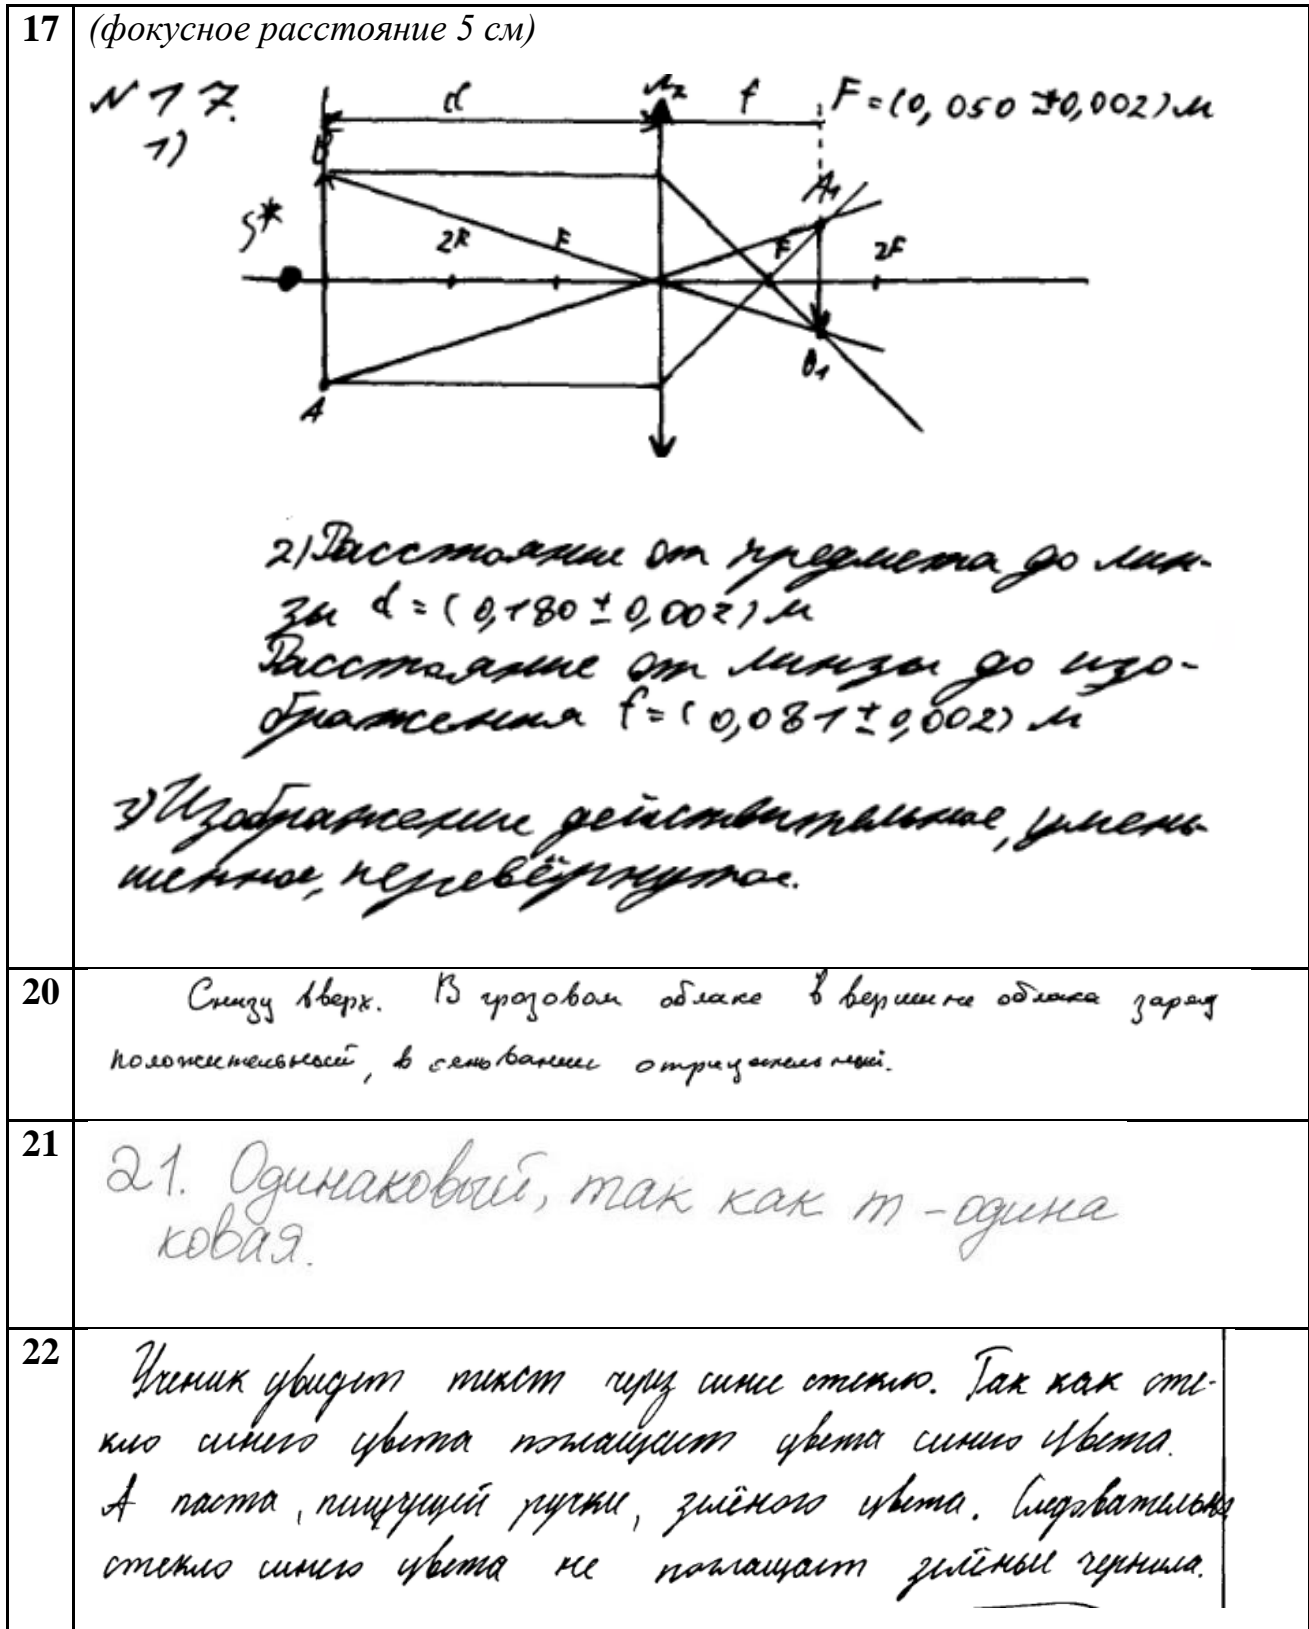 17 (фокусное расстояние 5 см)
N 17.
1)
d Лz f F = (0,050 ± 0,002) м
B
S*
2F F F 2F
A1
B1
A
2) Расстояние от предмета до лин-
зы d = (0,180 ± 0,002) м
Расстояние от линзы до изо-
бражения f = (0,081 ± 0,002) м
3) Изображение действительное, умень-
шенное, перевёрнутое.
20 Снизу вверх. В грозовом облаке в вершине облака заряд
положительный, в основании отрицательный.
21
21. Одинаковый, так как m - одина
ковая.
22 Ученик увидет текст через синее стекло. Так как сте-
кло синего цвета поглащает цвета синего цвета.
А паста, пишущей ручки, зелёного цвета. Следовательно
стекло синего цвета не поглащает зелёные чернила.